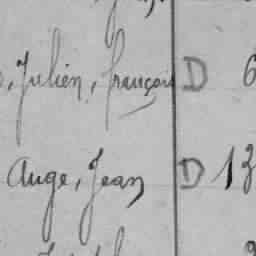 , Julien, françois D 6
Auge, Jean D 13